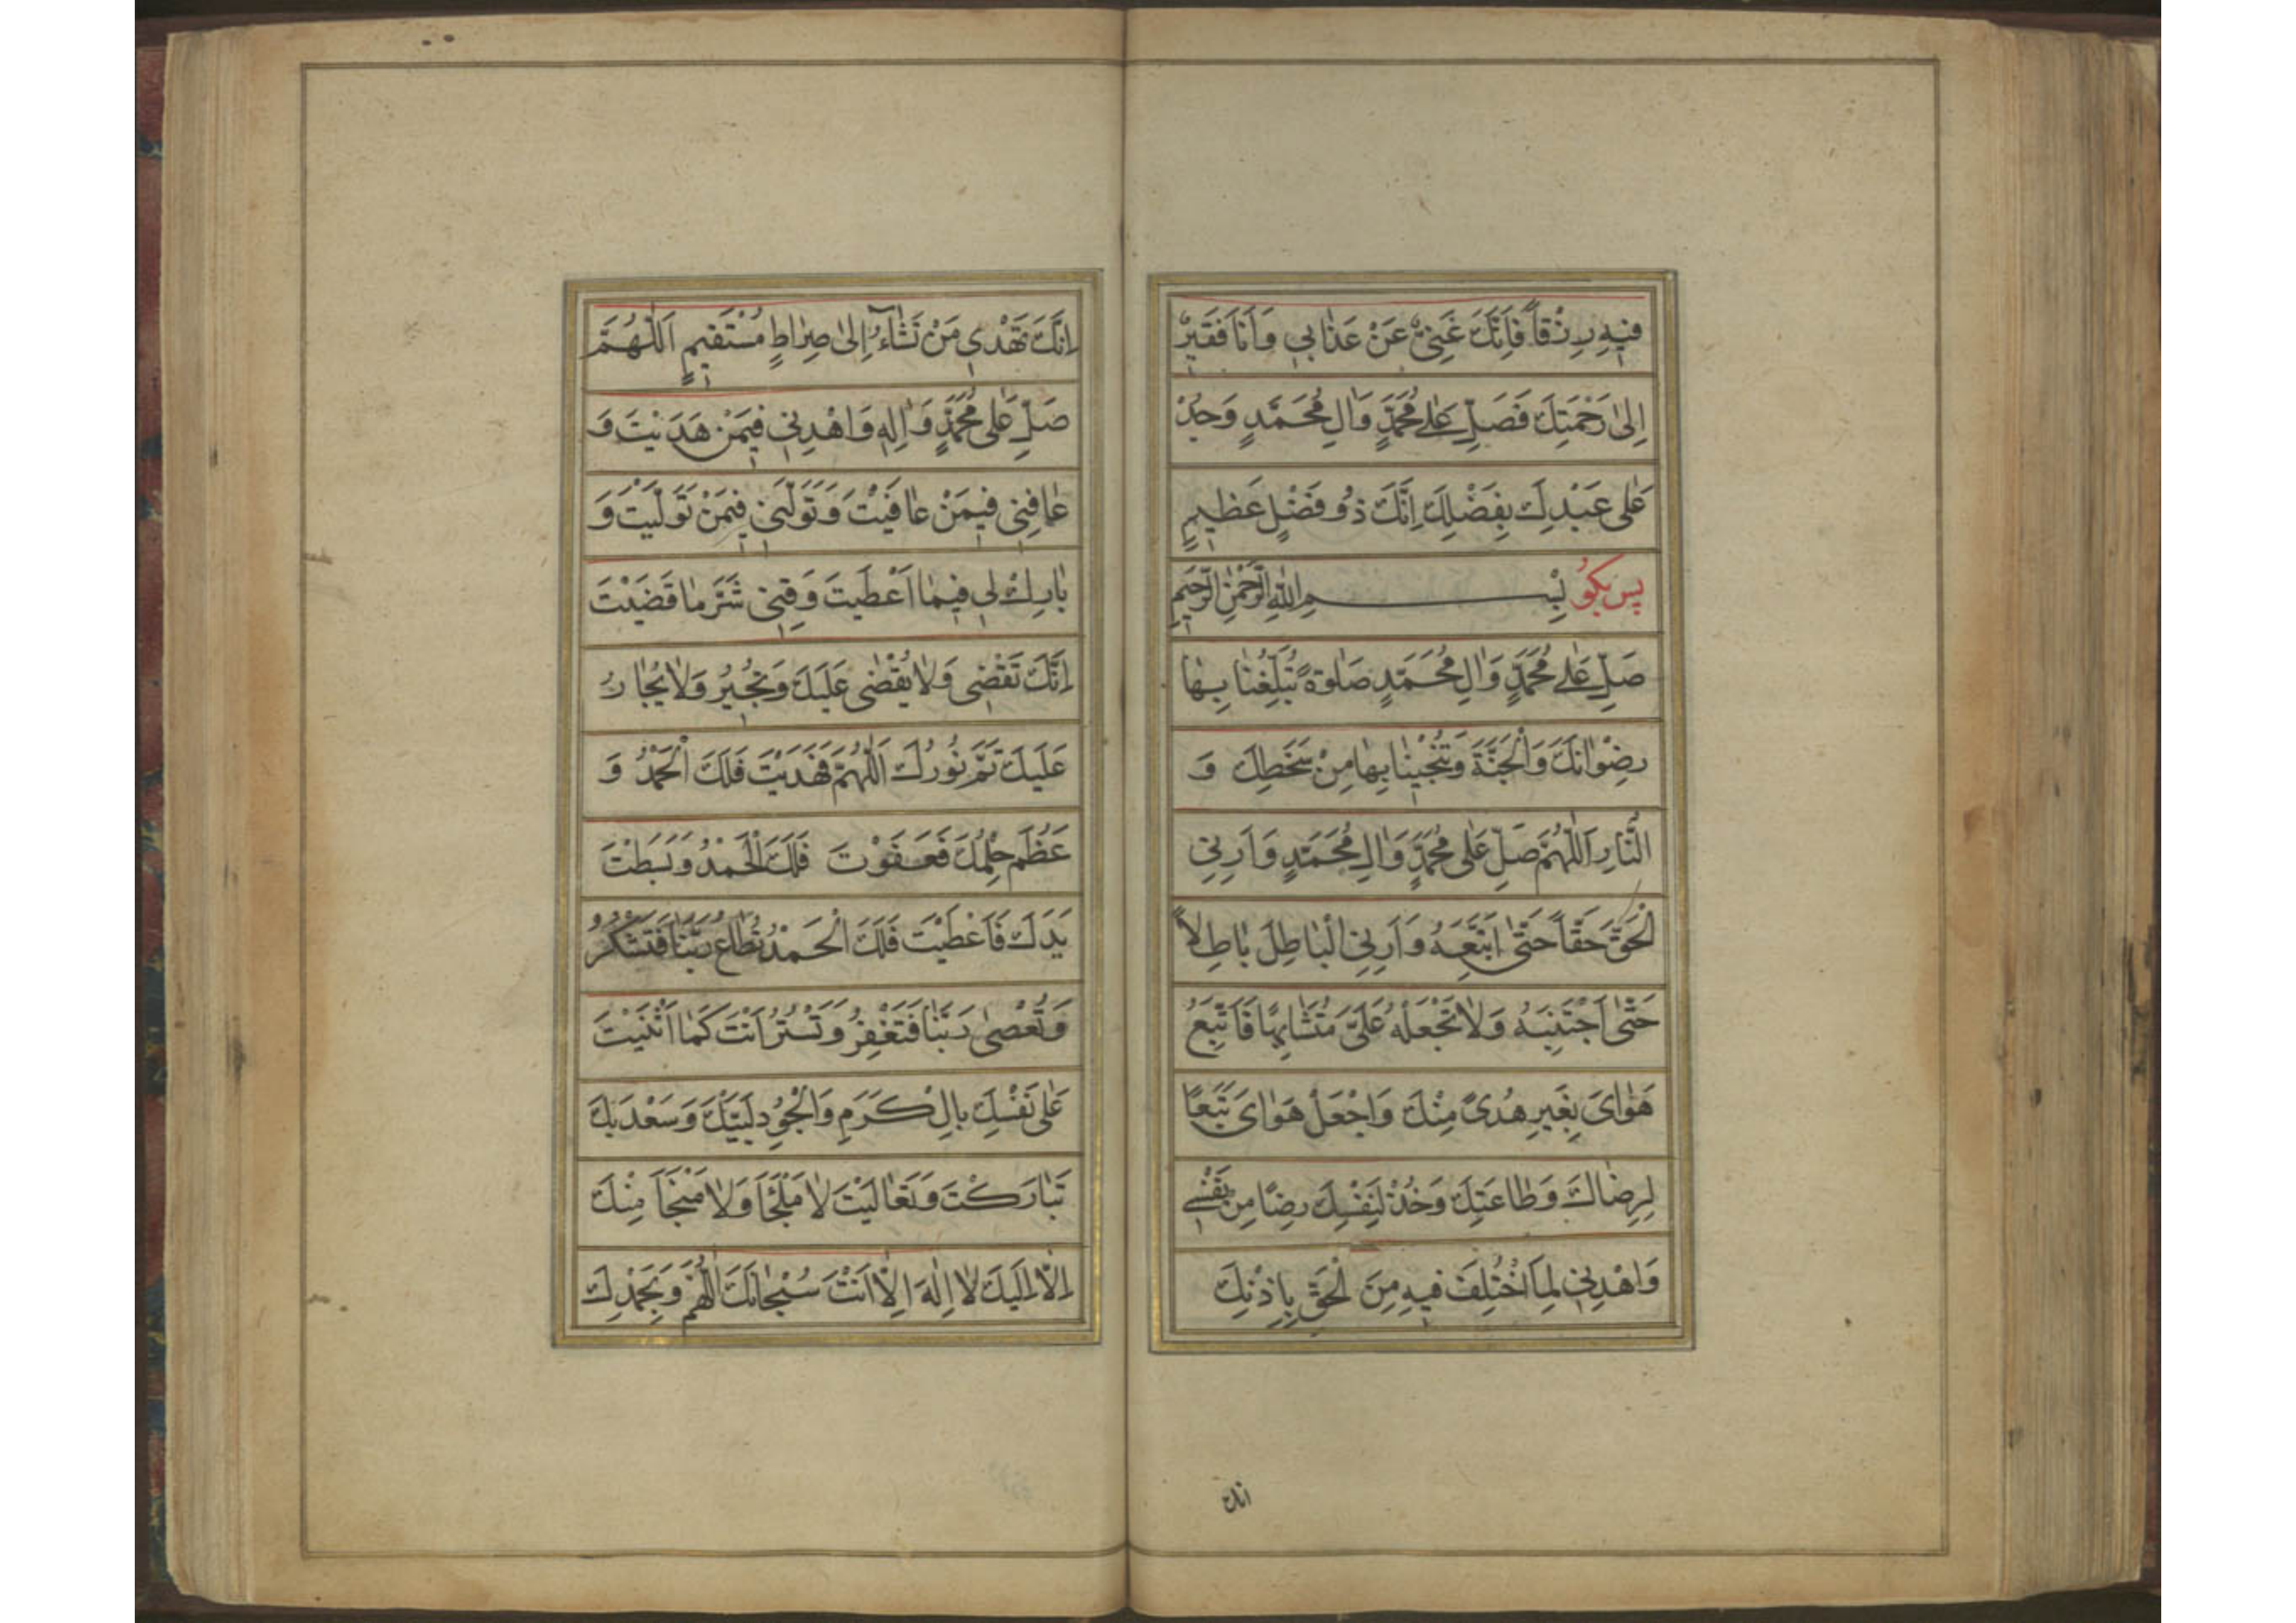 فِيهِ رِزْقاً فَاِنَّكَ غَنِيٌّ عَنْ عَذٰابِي وَاَنَا فَقِيرٌ
اِلىٰ رَحْمَتِكَ فَصَلِّ عَلىٰ مُحَمَّدٍ وَاٰلِ مُحَمَّدٍ وَجُدْ
عَلىٰ عَبْدِكَ بِفَضْلِكَ اِنَّكَ ذُو فَضْلٍ عَظِيمٍ
پس بگو بِسْمِ اللّٰهِ الرَّحْمٰنِ الرَّحِيمِ
صَلِّ عَلىٰ مُحَمَّدٍ وَاٰلِ مُحَمَّدٍ صَلٰوةً تُبَلِّغُنٰا بِهٰا
رِضْوٰانَكَ وَالْجَنَّةَ وَتُنْجِينٰا بِهٰا مِنْ سَخَطِكَ وَ
النّٰارِ اَللّٰهُمَّ صَلِّ عَلىٰ مُحَمَّدٍ وَاٰلِ مُحَمَّدٍ وَاَرِنِي
الْحَقَّ حَقّاً حَتّىٰ اَتَّبِعَهُ وَاَرِنِي الْبٰاطِلَ بٰاطِلاً
حَتّىٰ اَجْتَنِبَهُ وَلٰا تَجْعَلْهُ عَلَيَّ مُتَشٰابِهًا فَاَتَّبِعُ
هَوٰايَ بِغَيْرِ هُدىً مِنْكَ وَاجْعَلْ هَوٰايَ تَبَعًا
لِرِضٰاكَ وَطٰاعَتِكَ وَخُذْ لِنَفْسِكَ رِضًا مِنْ نَفْسِي
وَاهْدِنِي لِمَا اخْتُلِفَ فِيهِ مِنَ الْحَقِّ بِاِذْنِكَ
انك
اِنَّكَ تَهْدِي مَنْ تَشٰآءُ اِلىٰ صِرٰاطٍ مُسْتَقِيمٍ اَللّٰهُمَّ
صَلِّ عَلىٰ مُحَمَّدٍ وَاٰلِهِ وَاهْدِنِي فِيمَنْ هَدَيْتَ وَ
عٰافِنِي فِيمَنْ عٰافَيْتَ وَتَوَلَّنِي فِيمَنْ تَوَلَّيْتَ وَ
بٰارِكْ لِي فِيمٰا اَعْطَيْتَ وَقِنِي شَرَّ مٰا قَضَيْتَ
اِنَّكَ تَقْضِي وَلٰا يُقْضىٰ عَلَيْكَ وَتُجِيرُ وَلٰا يُجٰارُ
عَلَيْكَ تَمَّ نُورُكَ اَللّٰهُمَّ فَهَدَيْتَ فَلَكَ الْحَمْدُ وَ
عَظُمَ حِلْمُكَ فَعَفَوْتَ فَلَكَ الْحَمْدُ وَبَسَطْتَ
يَدَكَ فَاَعْطَيْتَ فَلَكَ الْحَمْدُ تُطٰاعُ رَبَّنٰا فَتَشْكُرُ
وَتُعْصىٰ رَبَّنٰا فَتَغْفِرُ وَتَسْتُرُ اَنْتَ كَمٰا اَثْنَيْتَ
عَلىٰ نَفْسِكَ بِالْكَرَمِ وَالْجُودِ لَبَّيْكَ وَسَعْدَيْكَ
تَبٰارَكْتَ وَتَعٰالَيْتَ لٰا مَلْجَأَ وَلٰا مَنْجَأَ مِنْكَ
اِلّٰا اِلَيْكَ لٰا اِلٰهَ اِلّٰا اَنْتَ سُبْحٰانَكَ اَللّٰهُمَّ وَبِحَمْدِكَ